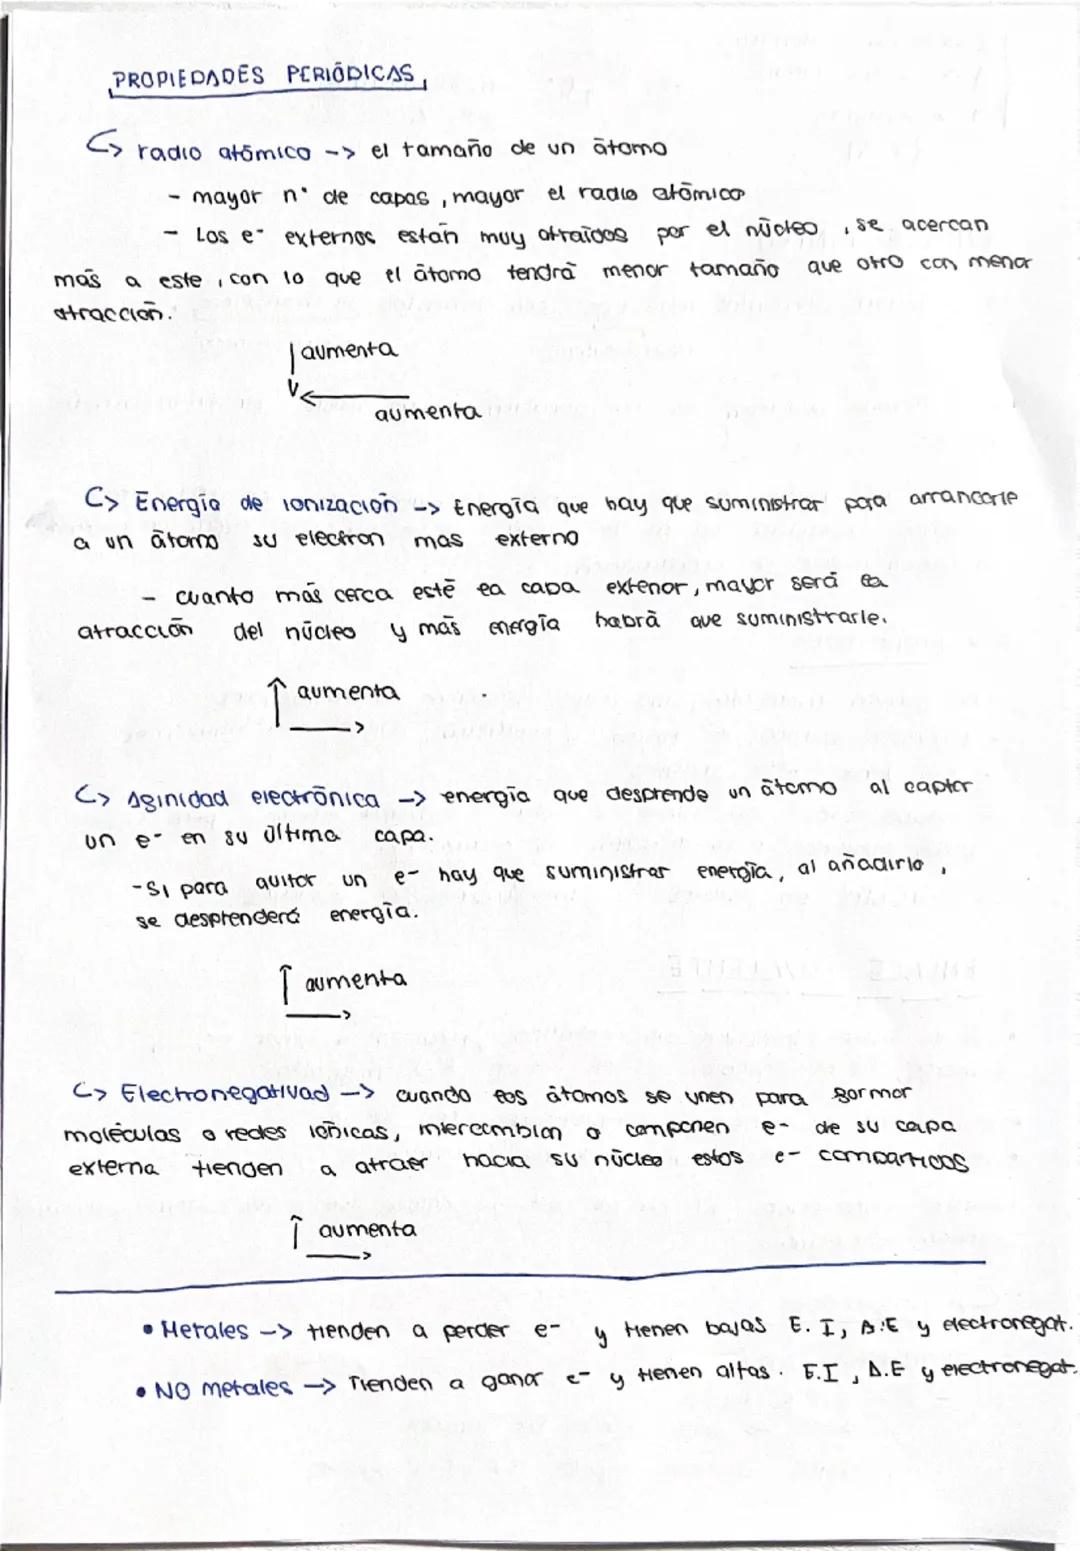 PROPIEDADES PERIÓDICAS
radio atómico -> el tamaño de un átomo
- mayor nº de capas, mayor el radio atómico
- Los e- externos están muy atraídos por el núcleo, se acercan
más a este, con lo que el átomo tendrá menor tamaño que otro con menor
atracción.
aumenta
aumenta
Energía de ionización -> Energía que hay que suministrar para arrancarle
a un átomo su electrón mas externo
- cuanto más cerca esté la capa exterior, mayor será la
atracción del núcleo y más energía habrá que suministrarle.
aumenta
Afinidad electrónica -> energía que desprende un átomo al captar
un e- en su última capa.
- Si para quitar un e- hay que suministrar energía, al añadirlo,
se desprenderá energía.
aumenta
Electronegativad -> cuando los átomos se unen para formar
moléculas o redes iónicas, intercambian o comparten e- de su capa
externa tienden a atraer hacia su núcleo estos e- compartidos
aumenta
• Metales -> tienden a perder e- y tienen bajas E.I, A.E y electronegat.
• NO metales -> Tienden a ganar e- y tienen altas. E.I, A.E y electronegat.